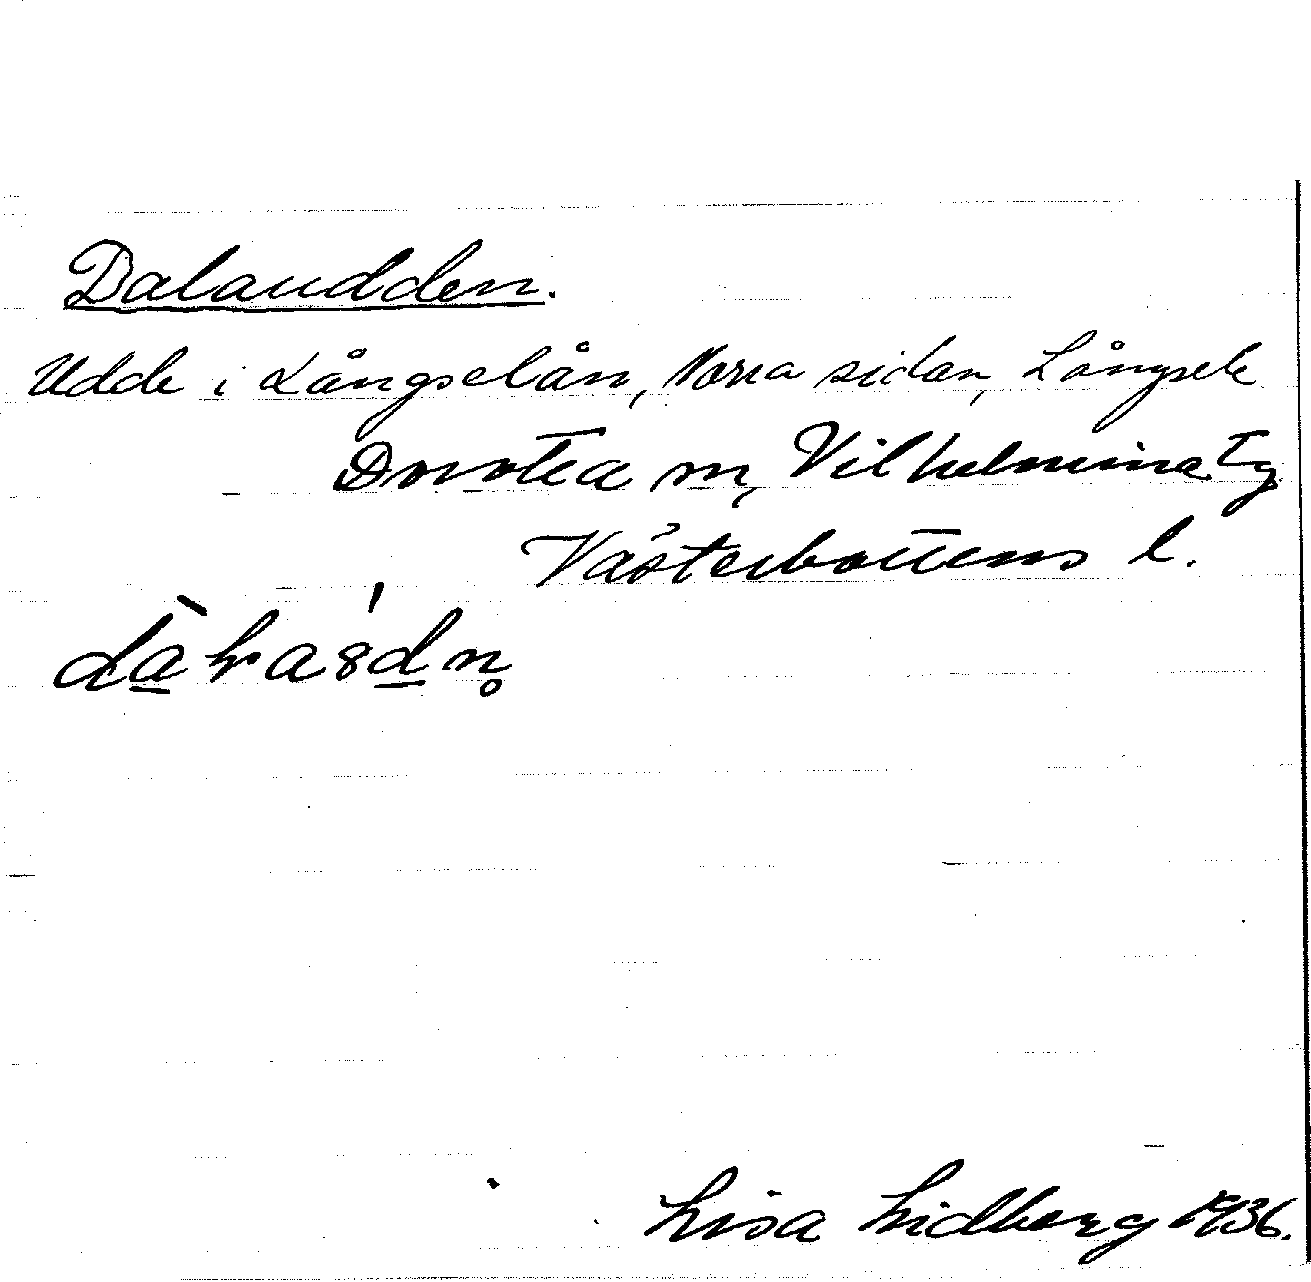 Dalaudden.
Udde i Långselån, Norra sidan, Långsele
Dorotea m, Vilhelmina tg
Västerbottens l.
Lisa Lidberg 1936.